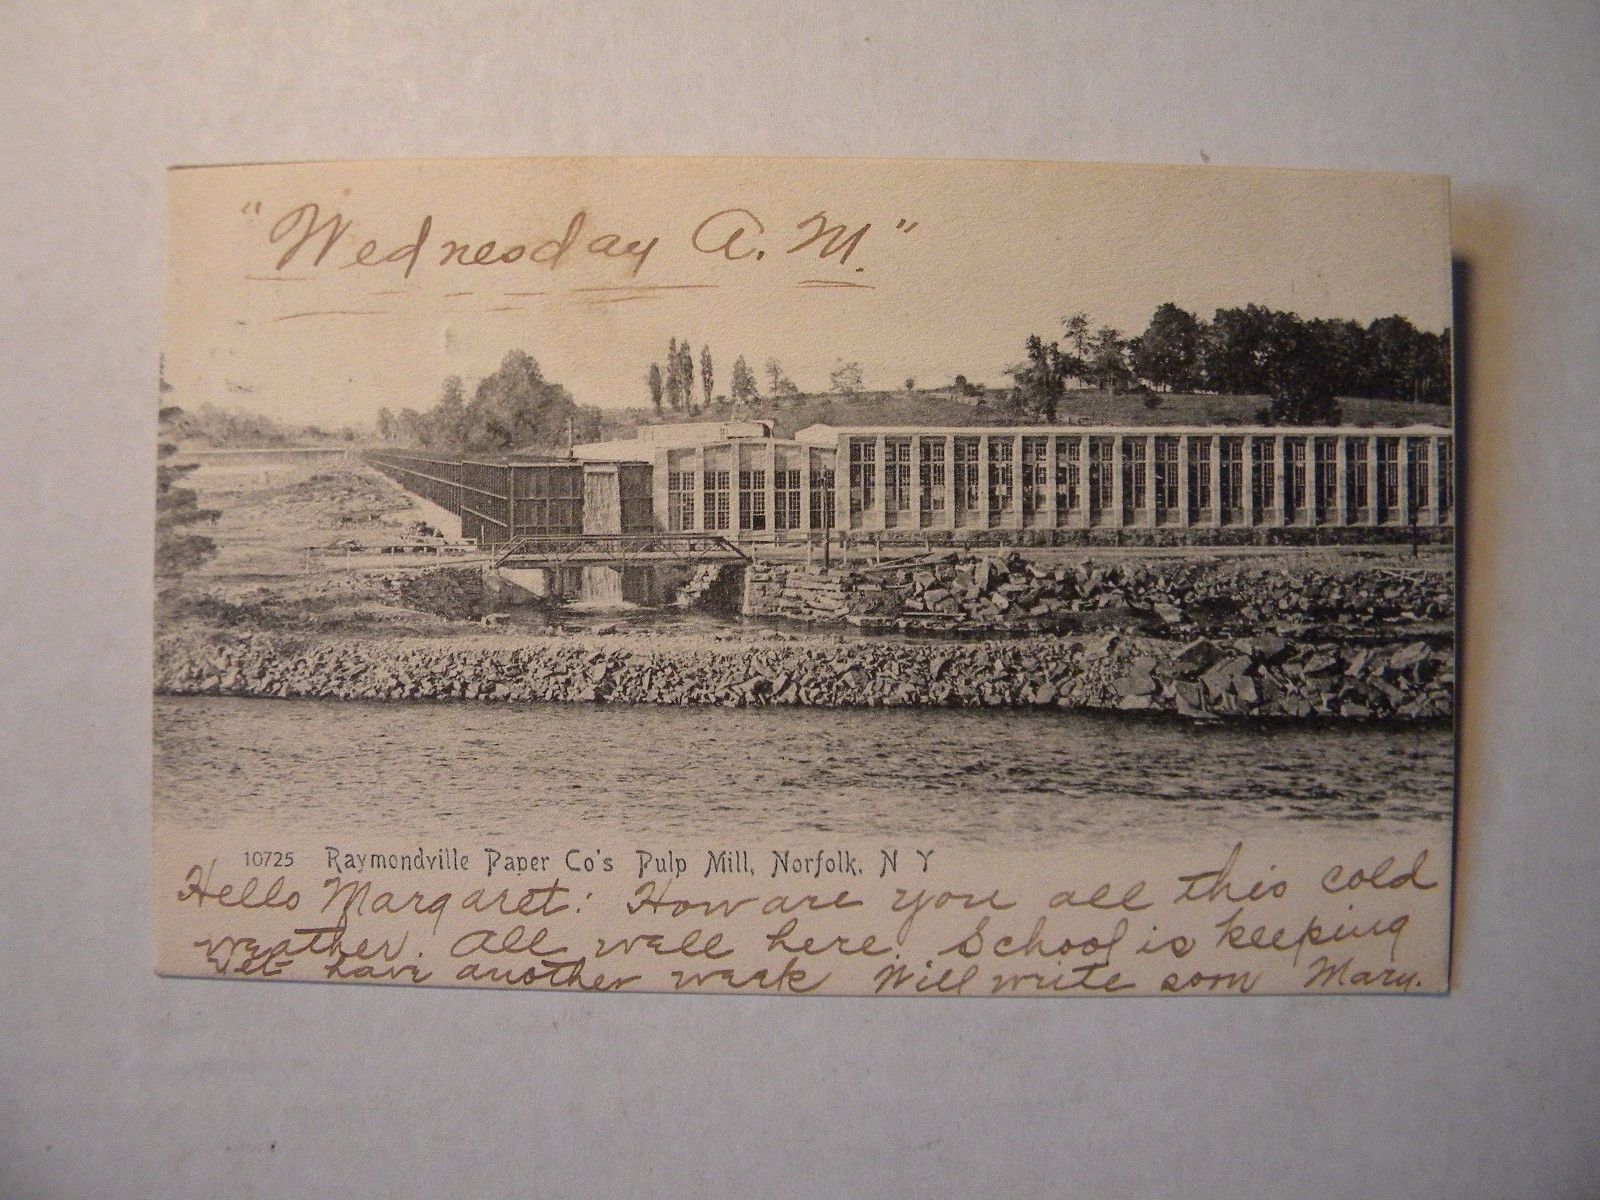 "Wednesday A.M."
10725 Raymondville Paper Co's Pulp Mill, Norfolk, N Y
Hello Margaret: How are you all this cold
weather. All well here. School is keeping
yet have another week Will write soon Mary.